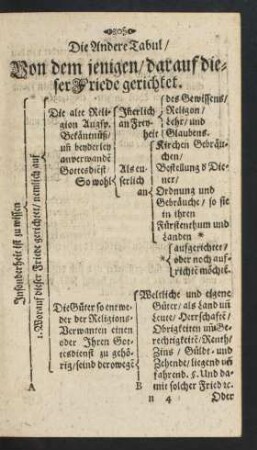 Die Andere Tabul/
Von dem jenigen/ darauf die-
ser Friede gerichtet.
Insonderheit ist zu wissen
1. Worauf dieser Friede gerichtet/ nemlich auf
Die alte Reli-
gion Augsp.
Bekäntnüß/
uñ beyderley
anverwandẽ
Gottesdiẽst
So wohl
Iñerlich
an Frey-
heit
des Gewissens/
Religion/
Lehr/ und
Glaubens.
Als eu-
serlich
an
Kirchen Gebräu-
chen/
Bestellung d' Die-
ner/
Ordnung und
Gebräuche/ so sie
in ihren
Fürstenthum und
Landen *
* aufgerichtet/
oder noch auf-
richtẽ möchtẽ.
Die Güter so entwe-
der der Religions-
Verwanten einen
oder Ihren Got-
tesdienst zu gehö-
rig/ seind derowegẽ
Weltliche und eigene
Güter/ als Land uñ
Leute/ Herrschaftẽ/
Obrigkeiten uñ Ge-
rechtigkeitẽ/ Renth/
Zins/ Güldt- und
Zehende/ liegend uñ
fahrend. §. Und da-
mit solcher Fried ꝛc.
A
B
n 4
Oder